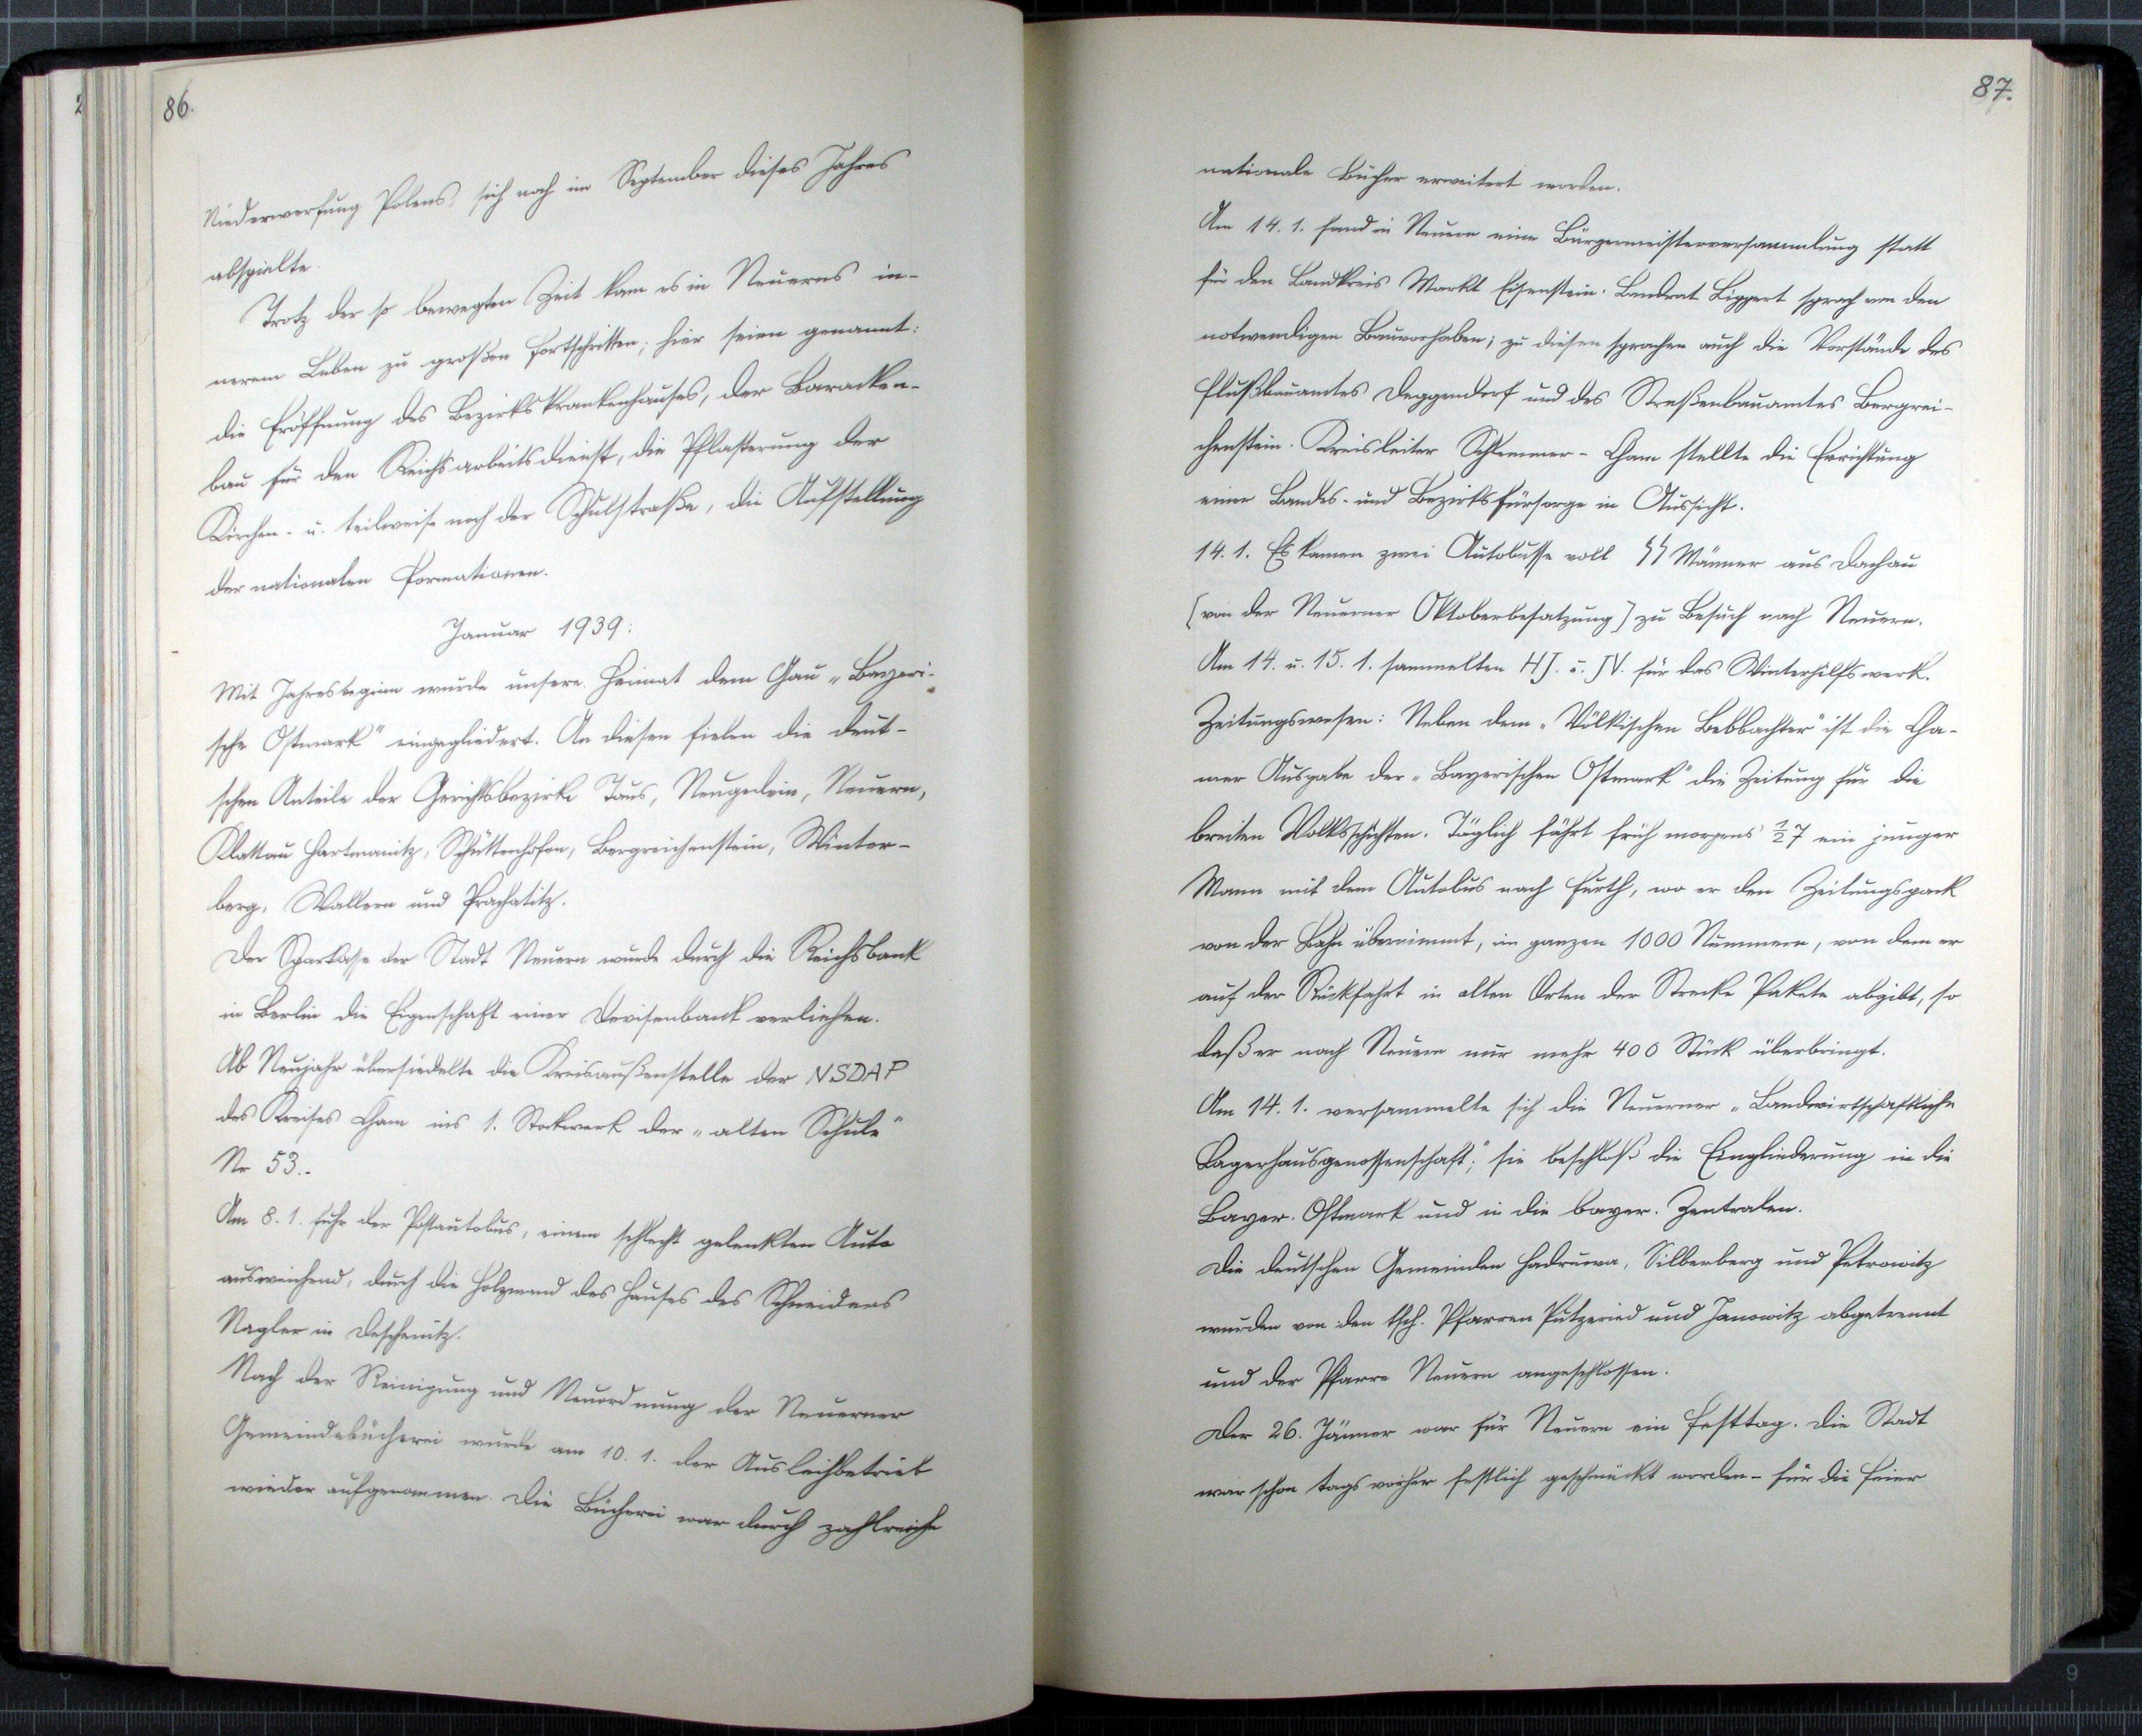 86.
Niederwerfung Polens, sich noch im September dieses Jahres
abspielte.
Trotz der so bewegten Zeit kam es in Neuerns in-
nerem Leben zu großen Fortschritten; hier seien genannt:
die Eröffnung des Bezirkskrankenhauses, der Baracken-
bau für den Reichsarbeitsdienst, die Pflasterung der
Kirchen- u. teilweise noch der Schulstraße, die Aufstellung
der nationalen Formationen.
Januar 1939:
Mit Jahresbeginn wurde unsere Heimat dem Gau „Bayeri-
sche Ostmark" eingegliedert. An diesen fielen die deut-
schen Anteile der Gerichtsbezirke Taus, Neugedein, Neuern,
Klattau Hartmanitz, Schüttenhofen, Bergreichenstein, Winter-
berg, Wallern und Prachatitz.
Der Sparkasse der Stadt Neuern wurde durch die Reichsbank
in Berlin die Eigenschaft einer Devisenbank verliehen.
Ab Neujahr übersiedelte die Kreisaußenstelle der NSDAP
des Kreises Cham ins 1. Stockwerk der „alten Schule"
Nr 53.-
Am 8. 1. fuhr der Postautobus, einem schlecht gelenkten Auto
ausweichend, durch die Holzwand des Hauses des Schneiders
Nagler in Deschenitz.
Nach der Reinigung und Neuordnung der Neuerner
Gemeindebücherei wurde am 10. 1. der Ausleihbetrieb
wieder aufgenommen. Die Bücherei war durch zahlreiche
87.
nationale Bücher erweitert worden.
Am 14. 1. fand in Neuern eine Bürgermeisterversammlung statt
für den Landkreis Markt Eisenstein. Landrat Liggert sprach von den
notwendigen Bauvorhaben; zu diesen sprachen auch die Vorstände des
Flußbauamtes Deggendorf und des Straßenbauamtes Bergrei-
chenstein. Kreisleiter Schlemmer-Cham stellte die Errichtung
einer Landes- und Bezirksfürsorge in Aussicht.
14. 1. Es kamen zwei Autobusse voll SS Männer aus Dachau
(von der Neuerner Oktoberbesatzung) zu Besuch nach Neuern.
Am 14. u. 15. 1. sammelten HJ. u. JV. für das Winterhilfswerk.
Zeitungswesen: Neben dem „Völkischen Bebbachter" ist die Cha-
mer Ausgabe der „Bayerischen Ostmark" die Zeitung für die
breiten Volksschichten. Täglich fährt früh morgens ½7 ein junger
Mann mit dem Autobus nach Furth, wo er den Zeitungspack
von der Bahn übernimmt, im ganzen 1000 Nummern, von dem er
auf der Rückfahrt in allen Orten der Strecke Pakete abgibt, so
daß er nach Neuern nur mehr 400 Stück überbringt.
Am 14. 1. versammelte sich die Neuerner „Landwirtschaftliche
Lagerhausgenossenschaft"; sie beschloß die Eingliederung in die
Bayer. Ostmark und in die bayer. Zentralen.
Die deutschen Gemeinden Hadruwa, Silberberg und Petrowitz
wurden von den tsch. Pfarren Putzeried und Janowitz abgetrennt
und der Pfarre Neuern angeschlossen.
Der 26. Jänner war für Neuern ein Festtag. Die Stadt
war schon tags vorher festlich geschmückt worden - für die Feier